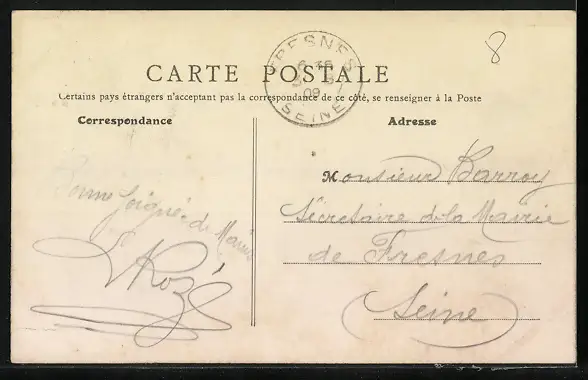 8
FRESNES
6 35
09
SEINE
CARTE POSTALE
Certains pays étrangers n'acceptant pas la correspondance de ce côté, se renseigner à la Poste
Correspondance
Adresse
Monsieur Barroy
Secrétaire de la Mairie
de Fresnes
Seine
Bonne